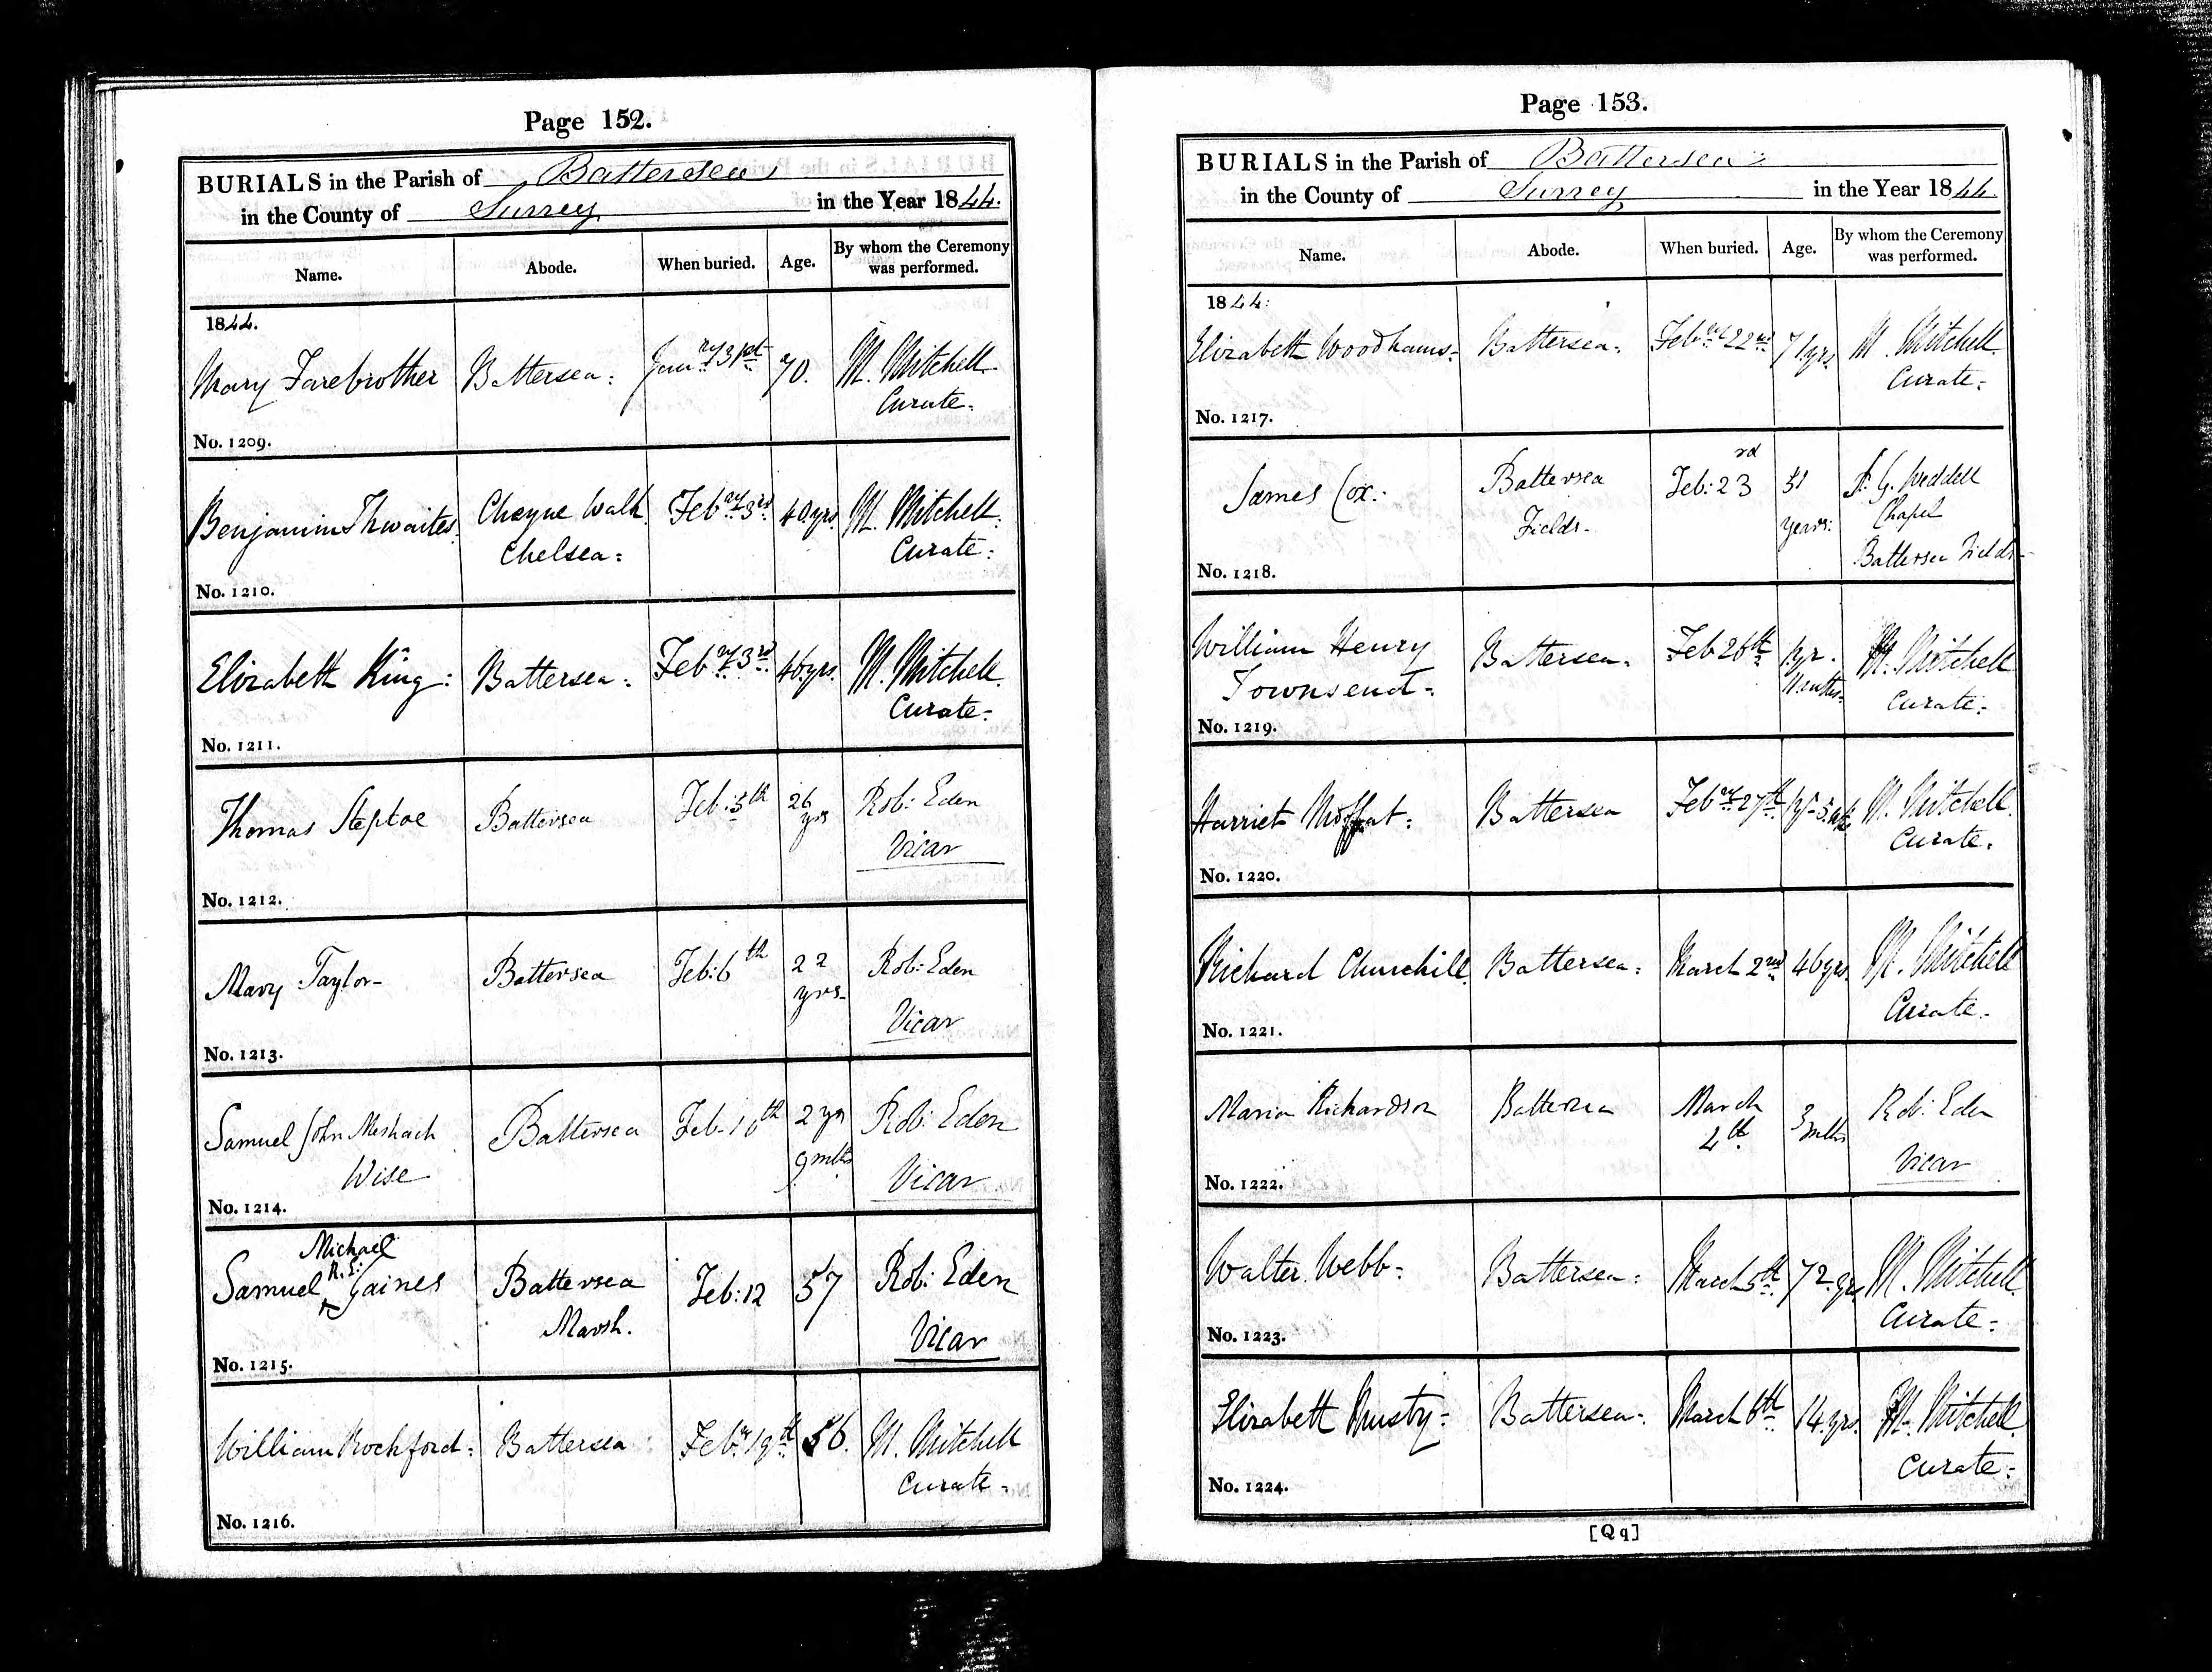 Page 152.
BURIALS in the Parish of Battersea
in the County of Surrey in the Year 1844.
Name. Abode. When buried. Age. By whom the Ceremony was performed.
1844.
Mary Farebrother Battersea: Janry 31st 70. M. Mitchell
Curate.
No. 1209.
Benjamin Thwaites. Cheyne Walk Febry 3rd 40 yrs. M. Mitchell.
Chelsea: Curate:
No. 1210.
Elizabeth King: Battersea: Febry 3rd 46 yrs. M. Mitchell.
Curate:
No. 1211.
Thomas Steptoe Battersea Feb: 5th 26 yrs Rob: Eden
Vicar
No. 1212.
Mary Taylor- Battersea Feb: 6th 22 yrs- Rob: Eden
Vicar
No. 1213.
Samuel John Meshach Battersea Feb- 10th 2 yrs Rob: Eden
Wise 9 mths Vicar
No. 1214.
Michael
R. E:
Samuel Gaines Battersea Feb: 12 57 Rob: Eden
Marsh. Vicar
No. 1215.
William Rochford: Battersea Feby 19th 56. M. Mitchell
Curate-
No. 1216.
Page 153.
BURIALS in the Parish of Battersea
in the County of Surrey in the Year 1844.
Name. Abode. When buried. Age. By whom the Ceremony was performed.
1844:
Elizabeth Woodhams: Battersea: Febry 22nd 71 yrs. M. Mitchell.
Curate:
No. 1217.
James Cox: Battersea Feb: 23rd 51 Weddell
Fields- years: Chapel
Battersea Fields-
No. 1218.
William Henry Battersea. Feb 26th 1 yr. M. Mitchell
Townsend: Curate:
No. 1219.
Harriet Moffat: Battersea Febry 27th M. Mitchell.
Curate.
No. 1220.
Richard Churchill. Battersea: March 2nd 46 yrs. M. Mitchell
Curate.
No. 1221.
Maria Richardson Battersea March 3 Rob: Eden
4th mths Vicar
No. 1222.
Walter Webb: Battersea: March 5th 72 yrs M. Mitchell
Curate:
No. 1223.
Elizabeth Musty: Battersea: March 6th 14 yrs. M. Mitchell.
Curate:
No. 1224.
[Qq]